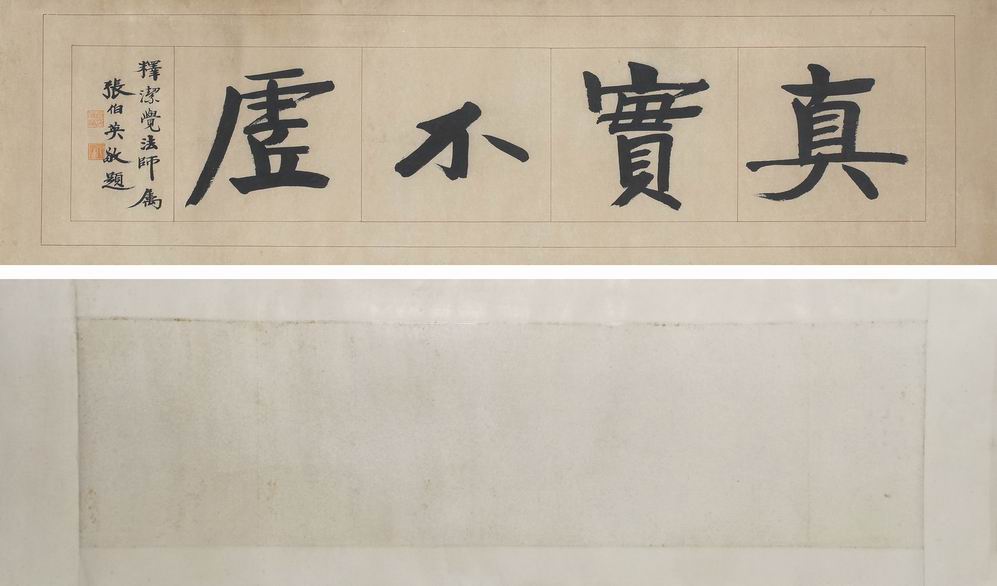 真實不虛
釋潔覺法師屬
張伯英敬題